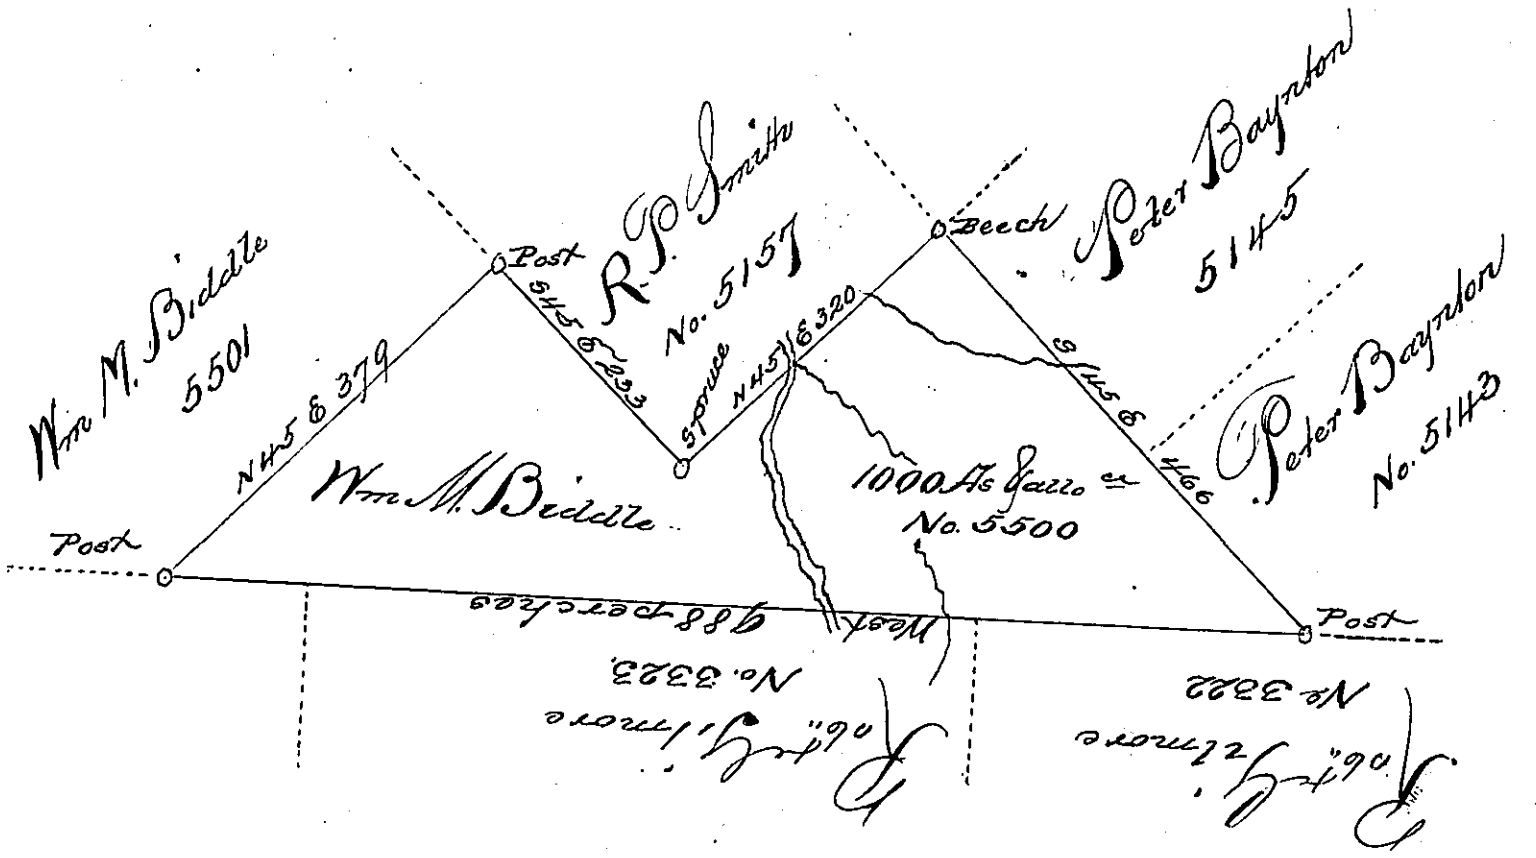 Wm M. Biddle
5501
N 45 E 379
Post
Post
S 45 E 233
R. P. Smith
No. 5157
Spruce
N 45 E 320
Beech
Peter Baynton
5145
S 45 E 466
Peter Baynton
No. 5143
Wm M. Biddle
1000 As & allo ce
No. 5500
Post
West 988 perches
No. 3323
Robt. Gilmore
No 3322
Robt. Gilmore